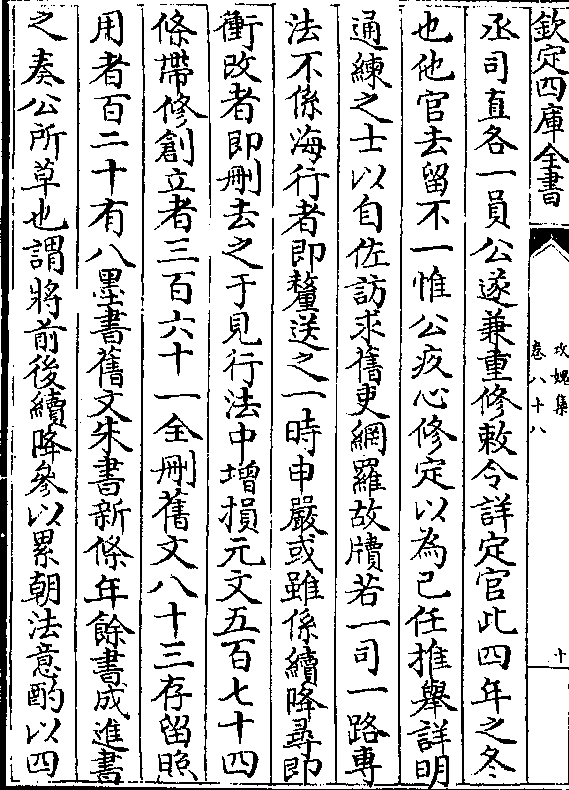 欽定四庫全書
攻媿集
卷八十八
十
丞司直各一員公遂兼重修敕令詳定官此四年之冬
也他官去留不一惟公疚心修定以為己任推舉詳明
通練之士以自佐訪求舊吏網羅故牘若一司一路專
法不係海行者即釐送之一時申嚴或雖係續降尋即
衝改者即刪去之于見行法中增損元文五百七十四
條帶修創立者三百六十一全刪舊文八十三存留照
用者百二十有八墨書舊文朱書新條年餘書成進書
之奏公所草也謂將前後續降參以累朝法意酌以四